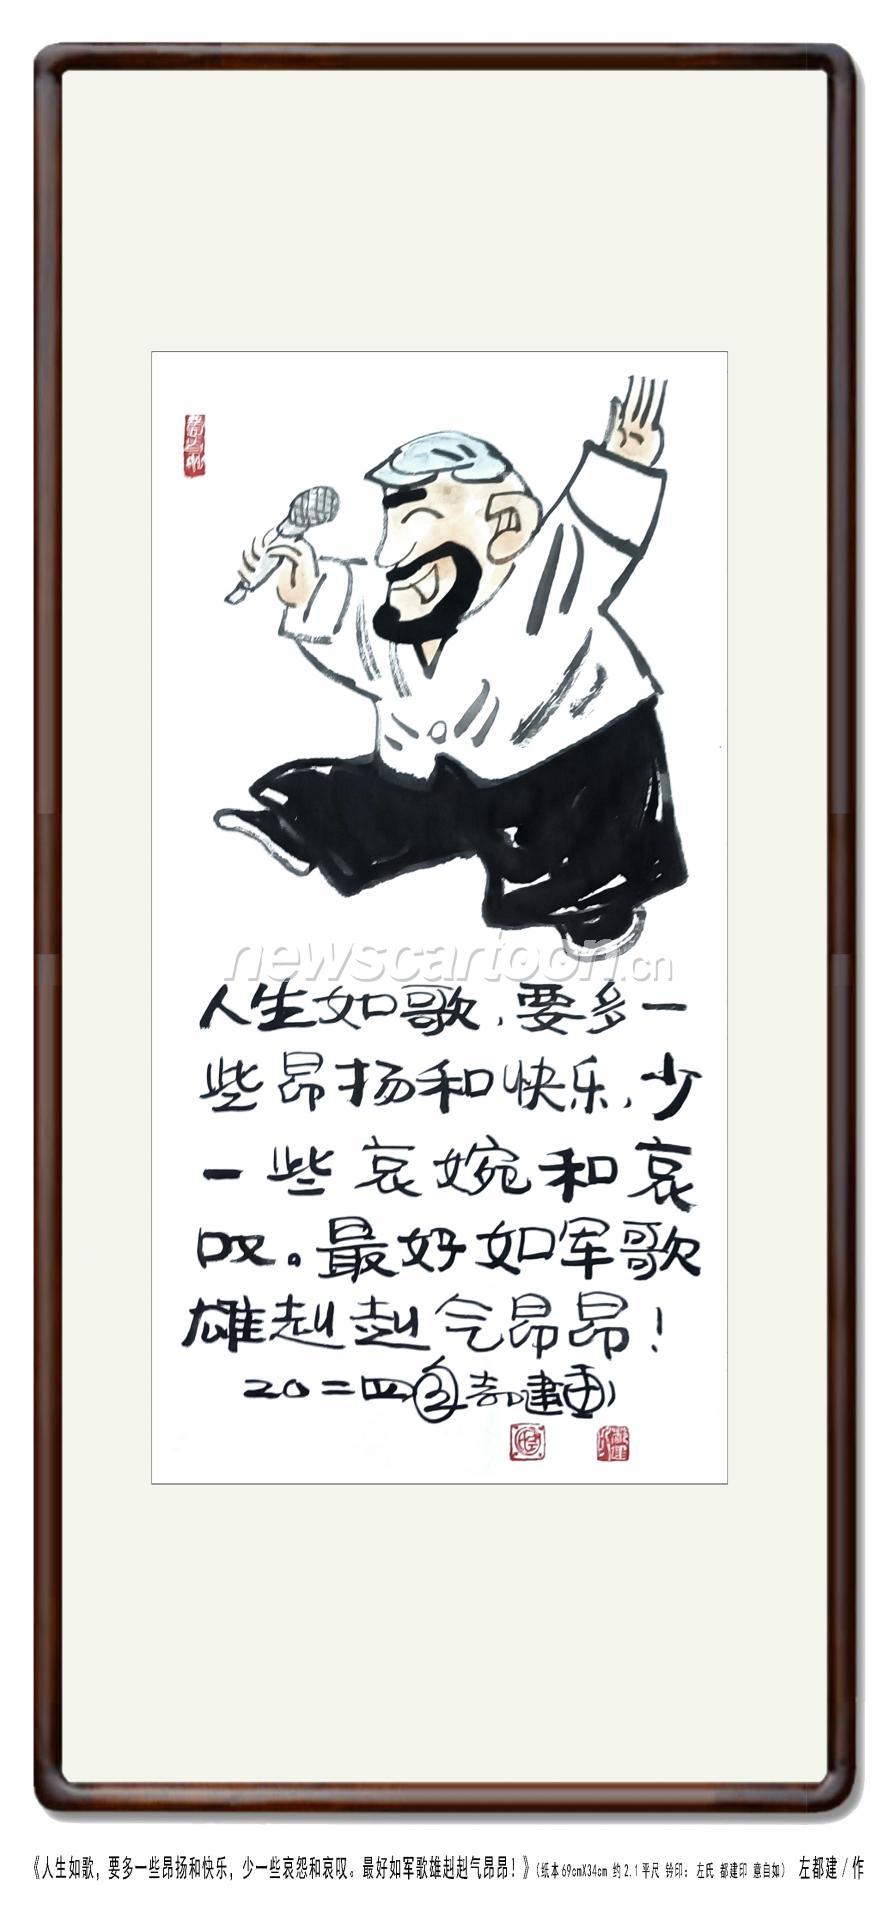 newscartoon.cn
人生如歌，要多一
些昂扬和快乐，少
一些哀婉和哀
叹。最好如军歌
雄赳赳气昂昂！
20二四 都建画
《人生如歌，要多一些昂扬和快乐，少一些哀怨和哀叹。最好如军歌雄赳赳气昂昂！》（纸本69cmX34cm 约2.1平尺 钤印：左氏 都建印 意自如） 左都建/作